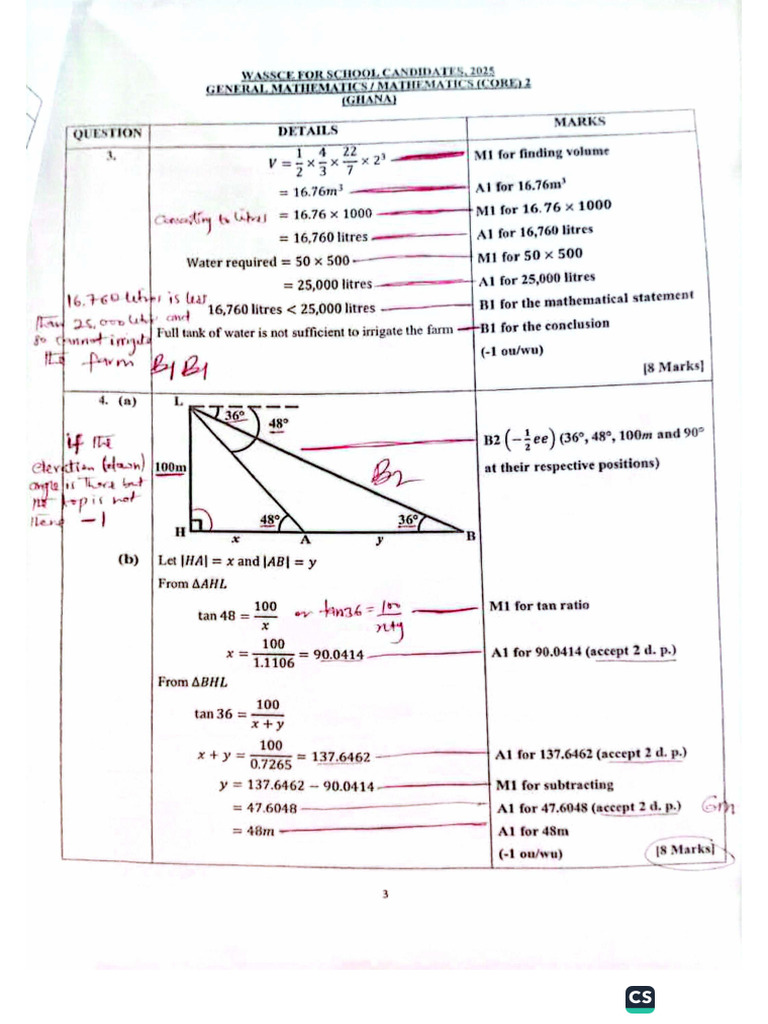 WASSCE FOR SCHOOL CANDIDATES, 2025
GENERAL MATHEMATICS / MATHEMATICS (CORE) 2
(GHANA)
QUESTION DETAILS MARKS
3. V = 1/2 × 4/3 × 22/7 × 2³ M1 for finding volume
= 16.76m³ A1 for 16.76m³
Converting to litres = 16.76 × 1000 M1 for 16.76 × 1000
= 16,760 litres A1 for 16,760 litres
Water required = 50 × 500 M1 for 50 × 500
= 25,000 litres A1 for 25,000 litres
16,760 litres < 25,000 litres B1 for the mathematical statement
Full tank of water is not sufficient to irrigate the farm B1 for the conclusion
(-1 ou/wu)
[8 Marks]
16.760 litres is less
than 25,000 litres and
so cannot irrigate
the farm B1 B1
4. (a) L
36°
48°
100m
H
x
48°
A
y
36°
B
B2
B2 (−1/2 ee) (36°, 48°, 100m and 90°
at their respective positions)
if the
elevation (down)
angle is there but
top is not
there −1
(b) Let |HA| = x and |AB| = y
From ΔAHL
tan 48 = 100/x or tan36 = 100/x+y M1 for tan ratio
x = 100/1.1106 = 90.0414 A1 for 90.0414 (accept 2 d. p.)
From ΔBHL
tan 36 = 100/x + y
x + y = 100/0.7265 = 137.6462 A1 for 137.6462 (accept 2 d. p.)
y = 137.6462 − 90.0414 M1 for subtracting
= 47.6048 A1 for 47.6048 (accept 2 d. p.)
= 48m A1 for 48m
(-1 ou/wu) [8 Marks]
3
CS